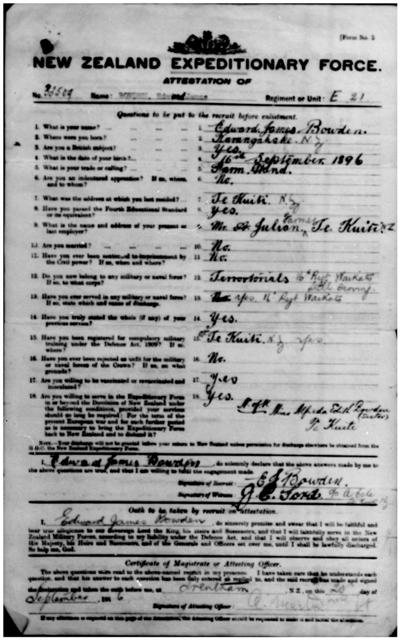 [Form No. 2
NEW ZEALAND EXPEDITIONARY FORCE.
ATTESTATION OF
No. 36509 Name: BOWDEN, Edward James Regiment or Unit: E 21
Questions to be put to the recruit before enlistment.
1. What is your name? 1. Edward James Bowden.
2. Where were you born? 2. Karangahake. N.Z.
3. Are you a British subject? 3. Yes.
4. What is the date of your birth? 4. 16th September 1896
5. What is your trade or calling? 5. Farm Hand.
6. Are you an indentured apprentice? If so, where, 6. No.
and to whom?
7. What was the address at which you last resided? 7. Te Kuiti N.Z
8. Have you passed the Fourth Educational Standard 8. Yes.
or its equivalent?
9. What is the name and address of your present or 9. Mr Julian, Farmer Te Kuiti NZ
last employer?
10. Are you married? 10. No.
11. Have you ever been sentenced to imprisonment by 11. No.
the Civil power? If so, when and where?
12. Do you now belong to any military or naval force? 12. Terrortorials 16th Regt Waikato
If so, to what corps? still serving
13. Have you ever served in any military or naval force? 13. yes. 16 Regt Waikato
If so, state which and cause of discharge.
14. Have you truly stated the whole (if any) of your 14. Yes.
previous service?
15. Have you been registered for compulsory military 15. Te Kuiti, N.Z yes.
training under the Defence Act, 1909? If so,
where?
16. Have you ever been rejected as unfit for the military 16. No.
or naval forces of the Crown? If so, on what
grounds?
17. Are you willing to be vaccinated or revaccinated and 17. yes
inoculated?
18. Are you willing to serve in the Expeditionary Force 18. Yes.
in or beyond the Dominion of New Zealand under
the following conditions, provided your services
should so long be required: For the term of the
present European war and for such further period
as is necessary to bring the Expeditionary Force
back to New Zealand and to disband it?
N of K Miss Alfreda Edith Bowden
(Sister)
Te Kuiti
NOTE.—Your discharge will not be granted unless your return to New Zealand unless permission for discharge elsewhere be obtained from the
G.O.C. the New Zealand Expeditionary Force.
I, Edward James Bowden, do solemnly declare that the above answers made by me to
the above questions are true, and that I am willing to fulfil the engagement made.
Signature of Recruit E J Bowden.
Signature of Witness J. C. Ford
Oath to be taken by recruit on attestation.
I, Edward James Bowden, do sincerely promise and swear that I will be faithful and
bear true allegiance to our Sovereign Lord the King, his heirs and Successors, and that I will faithfully serve in the New
Zealand Military Forces, according to my liability under the Defence Act, and that I will observe and obey all orders of
His Majesty, His Heirs and Successors, and of the Generals and Officers set over me, until I shall be lawfully discharged.
So help me, God.
Certificate of Magistrate or Attesting Officer.
The above questions were read to the above-named recruit in my presence. I have taken care that he understands each
question, and that his answer to each question has been duly entered as replied to, and the said recruit has made and signed
the declaration and taken the oath before me, at Trentham, N.Z., on this 20 day of
September 1916
Signature of Attesting Officer
If any alteration is required on this page of the Attestation, the Attesting Officer should be requested to make it and initial